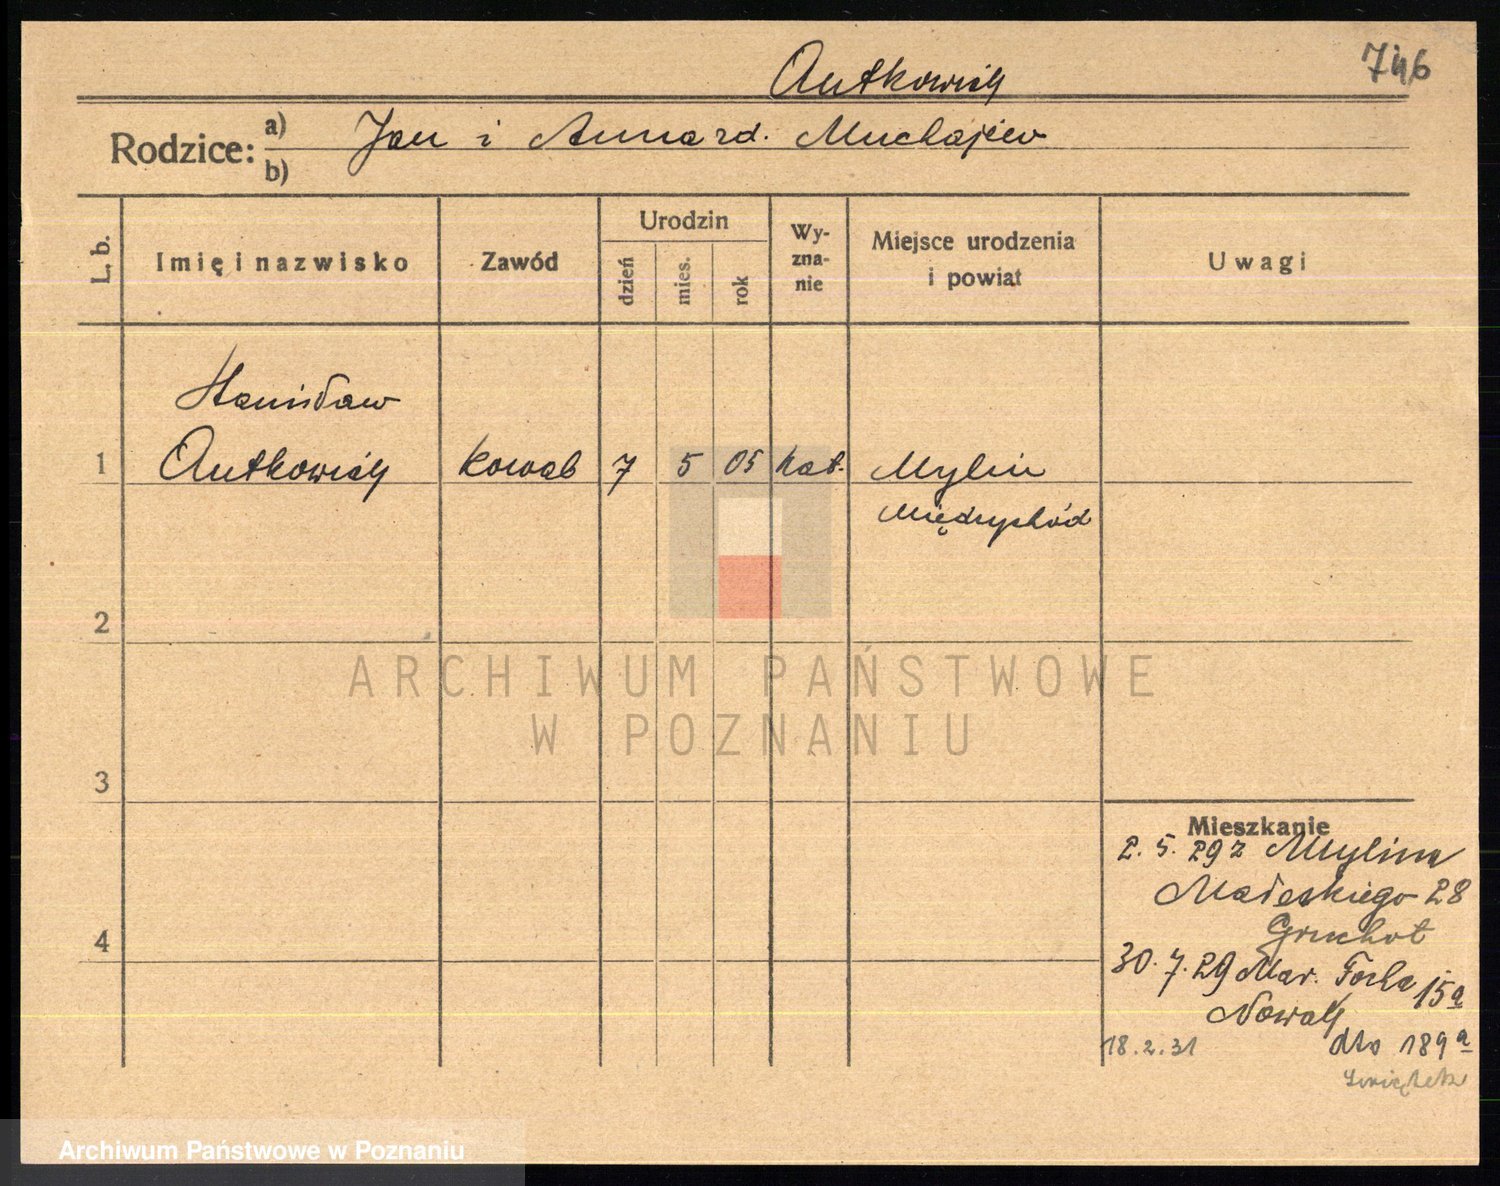 Antkowiak
746
Rodzice:
a) Jan i Anna rd.
b)
L. b.
Imię i nazwisko
Zawód
Urodzin
dzień
mies.
rok
Wy-
zna-
nie
Miejsce urodzenia
i powiat
Uwagi
Stanisław
1 Antkowiak kowal 7 5 05 kat. Mylin
Międzychód
2
ARCHIWUM PAŃSTWOWE
W POZNANIU
3
Mieszkanie
2. 5. 29 z Mylina
Małeckiego 28
Gruchot
4
30. 7. 29 Mar. Focha 15a
Nowak
18.2.31 dto 189a
Archiwum Państwowe w Poznaniu